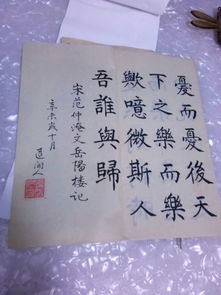 憂而憂後天
下之樂而樂
歟噫微斯人
吾誰與歸
宋范仲淹文岳陽樓記
辛未歲十月